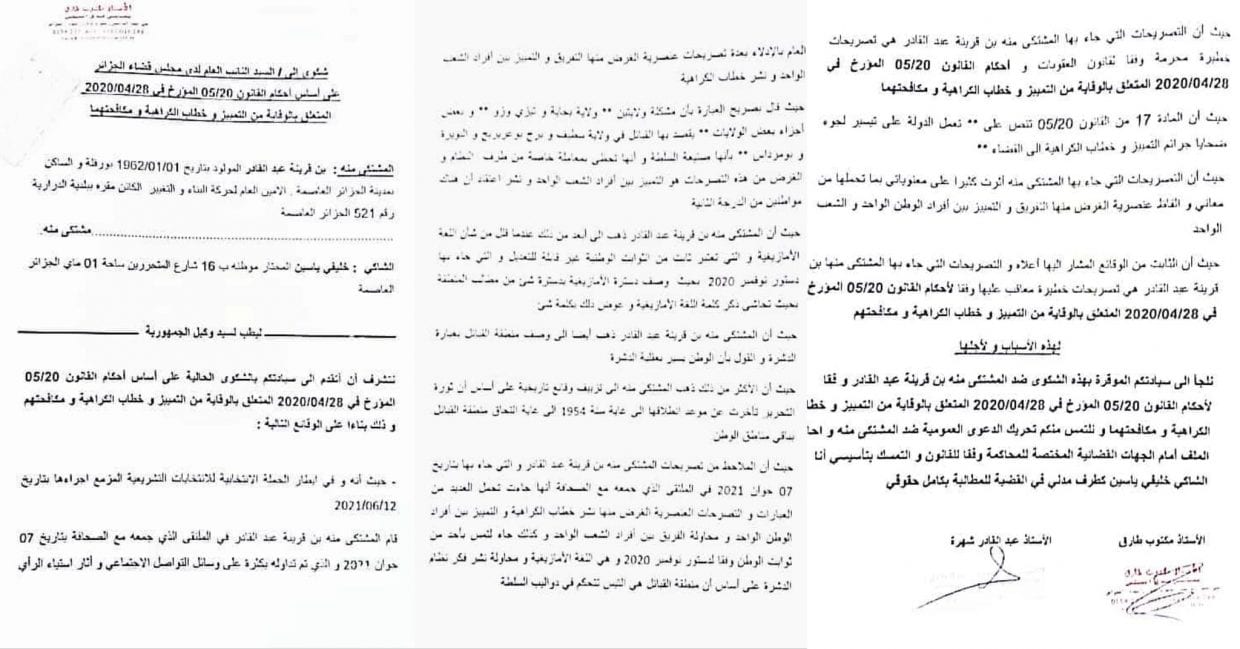 الأستاذ مكتوب طارق
شكوى إلى / السيد النائب العام لدى مجلس قضاء الجزائر
على أساس أحكام القانون 05/20 المؤرخ في 2020/04/28
المتعلق بالوقاية من التمييز و خطاب الكراهية و مكافحتهما
المشتكى منه : بن قرينة عبد القادر المولود بتاريخ 1962/01/01 بورقلة و الساكن
بمدينة الجزائر العاصمة . الامين العام لحركة البناء و التغيير الكائن مقره ببلدية الدرارية
رقم 521 الجزائر العاصمة
مشتكى منه.
الشاكي : خليفي ياسين المختار موطنه ب 16 شارع المتحررين ساحة 01 ماي الجزائر
العاصمة
ليطب لسيد وكيل الجمهورية
نتشرف أن أتقدم الى سيادتكم بالشكوى الحالية على أساس أحكام القانون 05/20
المؤرخ في 2020/04/28 المتعلق بالوقاية من التمييز و خطاب الكراهية و مكافحتهم
و ذلك بناءا على الوقائع التالية :
- حيث أنه و في ابطار الحملة الانتخابية للانتخابات التشريعية المزمع اجراءها بتاريخ
2021/06/12
قام المشتكى منه بن قرينة عبد القادر في الملتقى الذي جمعه مع الصحافة بتاريخ 07
جوان 2021 و الذي تم تداوله بكثرة على وسائل التواصل الاجتماعي و أثار استياء الرأي
العام بالإدلاء بعدة تصريحات عنصرية الغرض منها التفريق و التمييز بين أفراد الشعب
الواحد و نشر خطاب الكراهية
حيث قال بصريح العبارة بأن مشكلة ولايتين ** ولاية بجاية و تيزي وزو ** و بعض
أجزاء بعض الولايات ** يقصد بها القبائل في ولاية سطيف و برج بوعريريج و البويرة
و بومرداس ** بأنها صنيعة السلطة و أنها تحظى بمعاملة خاصة من طرف النظام و
الغرض من هذه التصرحات هو التمييز بين أفراد الشعب الواحد و نشر اعتقاد أن هناك
مواطنين من الدرجة الثانية
حيث أن المشتكى منه بن قرينة عبد القادر ذهب الى أبعد من ذلك عندما قلل من شأن اللغة
الأمازيغية و التي تعتبر ثابت من الثوابت الوطنية غير قابلة للتعديل و التي جاء بها
دستور نوفمبر 2020 بحيث وصف دسترة الأمازيغية بدسترة شئ من مطالب المنطقة
بحيث تحاشى ذكر كلمة اللغة الأمازيغية و عوض ذلك بكلمة شئ
حيث أن المشتكى منه بن قرينة عبد القادر ذهب أيضا الى وصف منطقة القبائل بعبارة
الدشرة و القول بأن الوطن يسير بعقلية الدشرة
حيث أن الأكثر من ذلك ذهب المشتكى منه الى تزييف وقائع تاريخية على أساس أن ثورة
التحرير تأخرت عن موعد انطلاقها الى غاية سنة 1954 الى غاية التحاق منطقة القبائل
بباقي مناطق الوطن
حيث أن الملاحظ من تصريحات المشتكى منه بن قرينة عبد القادر و التي جاء بها بتاريخ
07 جوان 2021 في الملتقى الذي جمعه مع الصحافة أنها جاءت تحمل العديد من
العبارات و التصرحات العنصرية الغرض منها نشر خطاب الكراهية و التمييز بين أفراد
الوطن الواحد و محاولة الفريق بين أفراد الشعب الواحد و كذلك جاء لتمس بأحد من
ثوابت الوطن وفقا لدستور نوفمبر 2020 و هي اللغة الأمازيغية و محاولة نشر فكر نظام
الدشرة على أساس أن منطقة القبائل هي التيس تتحكم في دواليب السلطة
حيث أن التصريحات التي جاء بها المشتكى منه بن قرينة عبد القادر هي تصريحات
خطيرة محرمة وفقا لقانون العقوبات و أحكام القانون 05/20 المؤرخ في
2020/04/28 المتعلق بالوقاية من التمييز و خطاب الكراهية و مكافحتهما
حيث أن المادة 17 من القانون 05/20 تنص على ** تعمل الدولة على تيسير لجوء
ضحايا جرائم التمييز و خطاب الكراهية الى القضاء **
حيث أن التصريحات التي جاء بها المشتكى منه أثرت كثيرا على معنوياتي بما تحملها من
معاني و الفاظ عنصرية الغرض منها التفريق و التمييز بين أفراد الوطن الواحد و الشعب
الواحد
حيث أن الثابت من الوقائع المشار اليها أعلاه و التصريحات التي جاء بها المشتكى منها بن
قرينة عبد القادر هي تصريحات خطيرة معاقب عليها وفقا لأحكام القانون 05/20 المؤرخ
في 2020/04/28 المتعلق بالوقاية من التمييز و خطاب الكراهية و مكافحتهم
لهذه الأسباب و لأجلها
نلجأ الى سيادتكم الموقرة بهذه الشكوى ضد المشتكى منه بن قرينة عبد القادر و فقا
لأحكام القانون 05/20 المؤرخ في 2020/04/28 المتعلق بالوقاية من التمييز و خطا
الكراهية و مكافحتهما و نلتمس منكم تحريك الدعوى العمومية ضد المشتكى منه و احا
الملف أمام الجهات القضائية المختصة للمحاكمة وفقا للقانون و التمسك بتأسيسي أنا
الشاكي خليفي ياسين كطرف مدني في القضية للمطالبة بكامل حقوقي
الأستاذ مكتوب طارق
الأستاذ عبد القادر شهرة